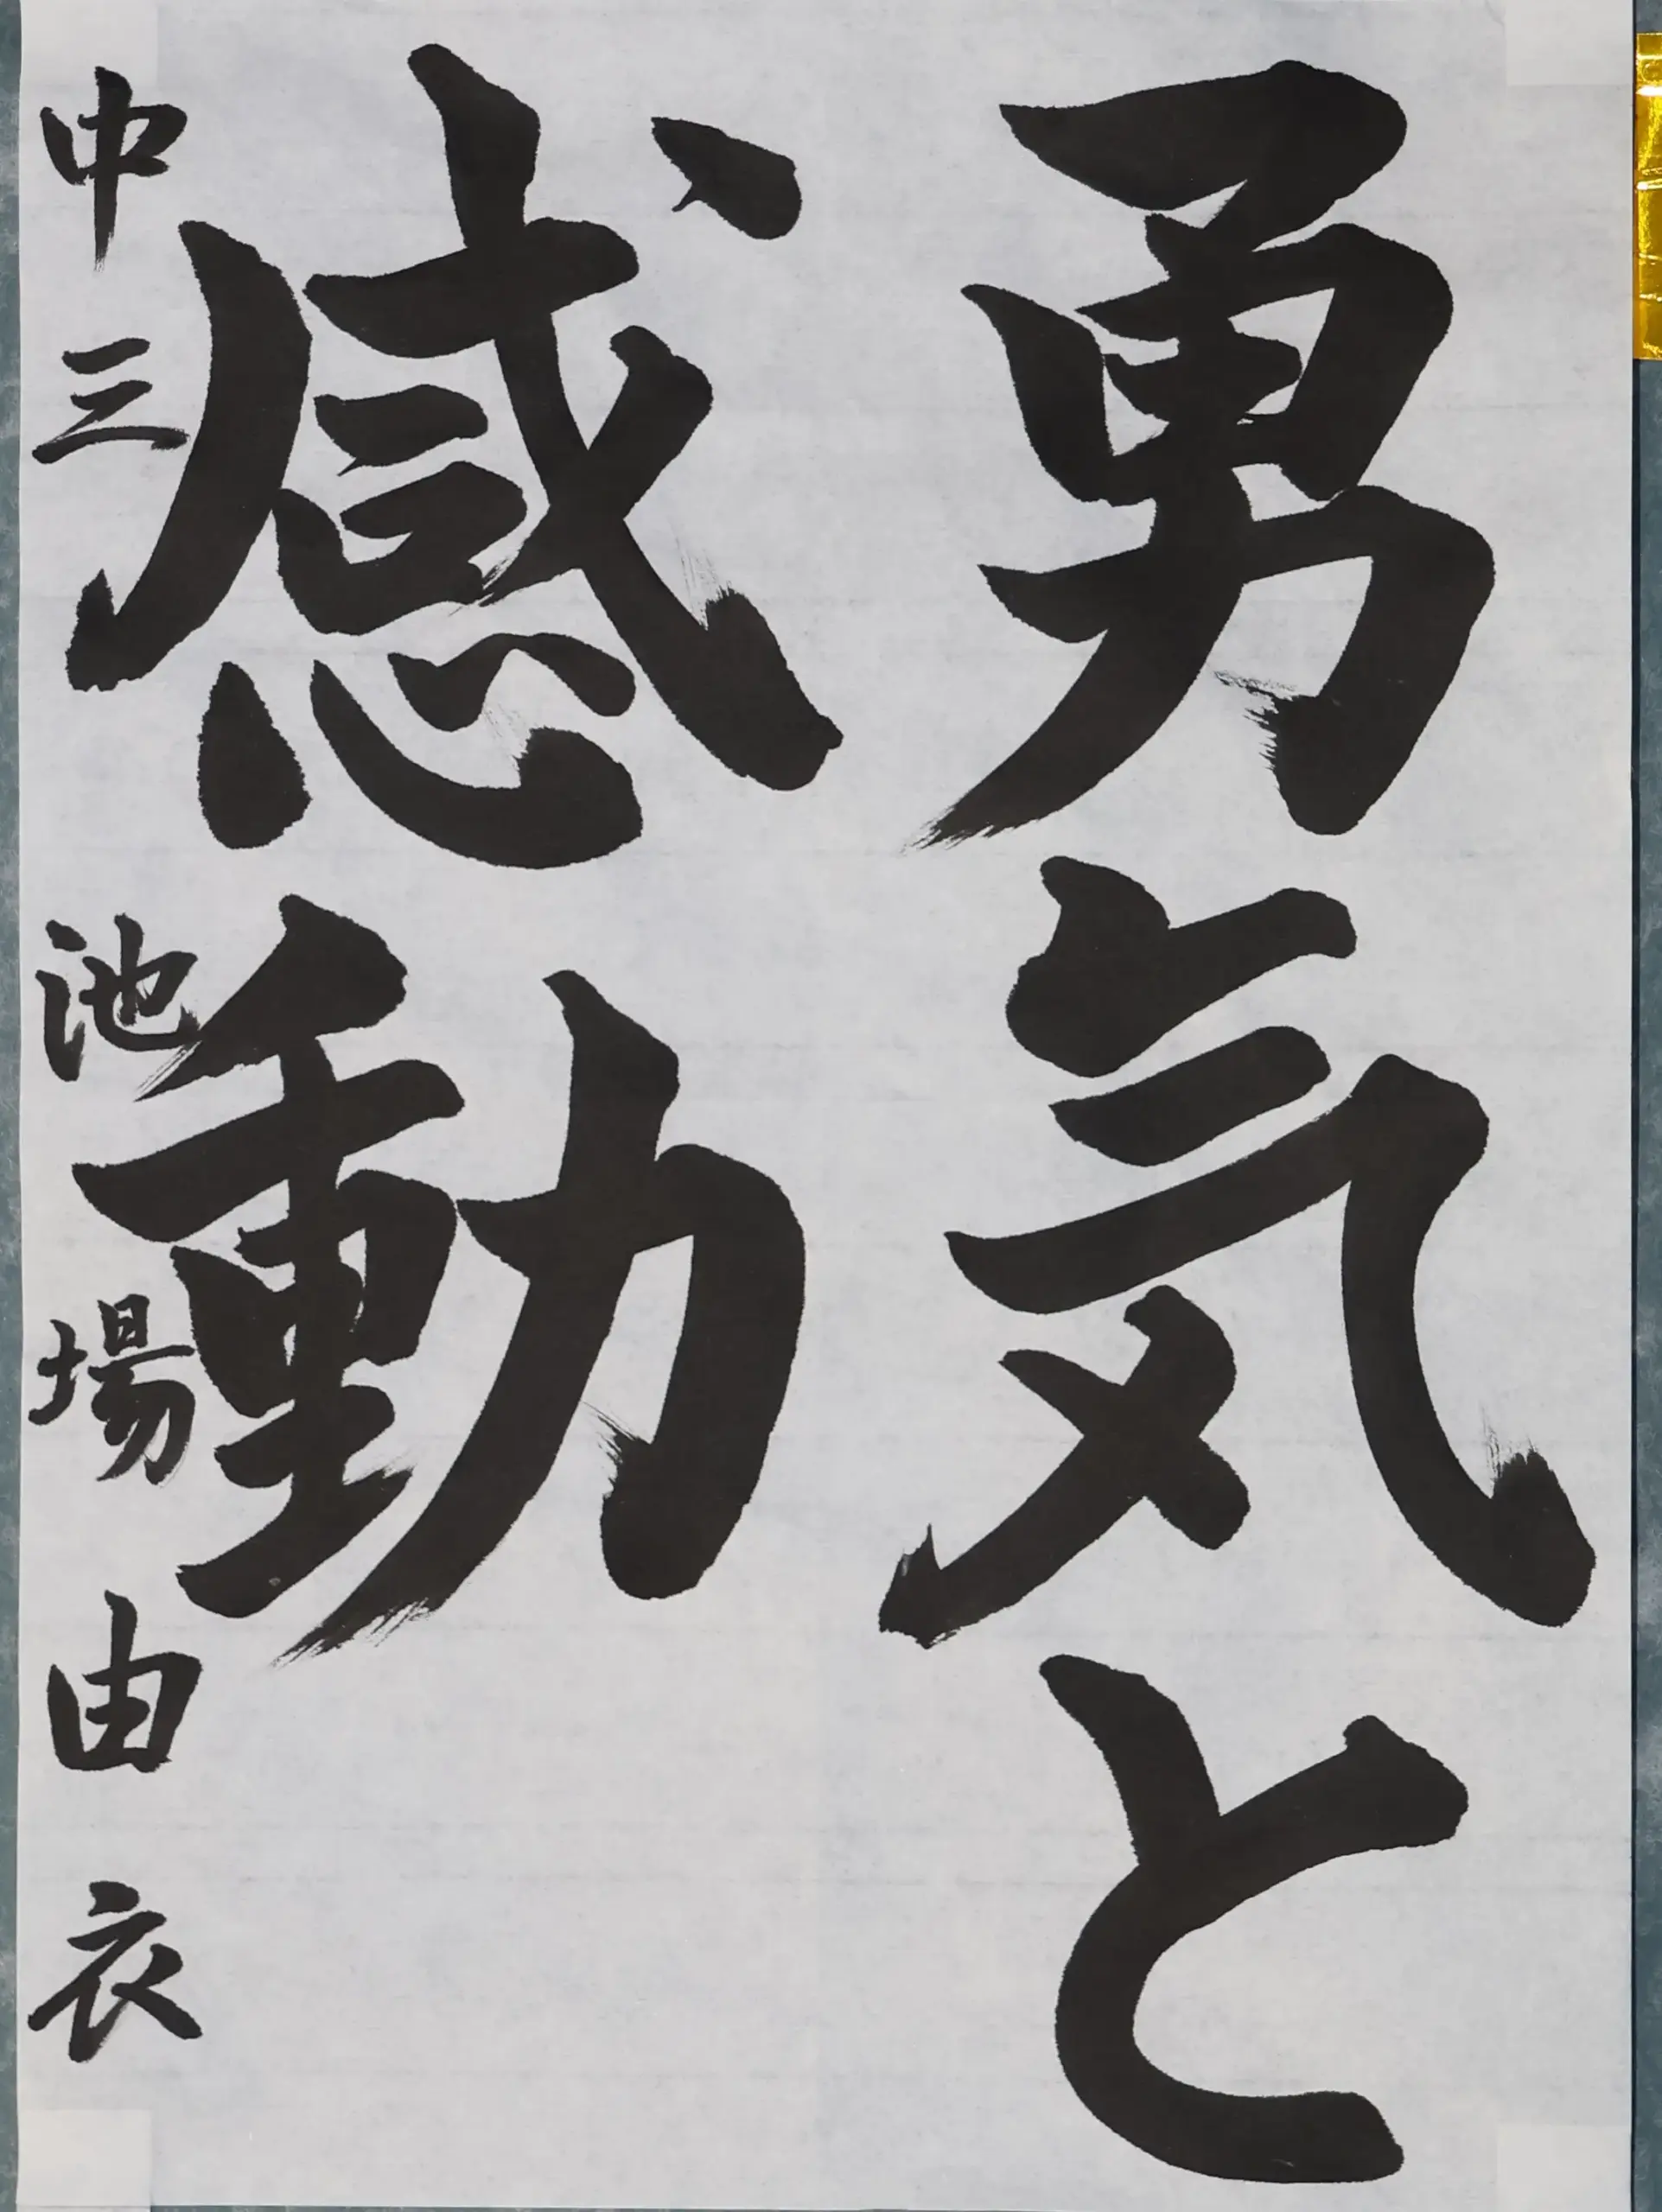 勇気と
感動
中三 池場由衣